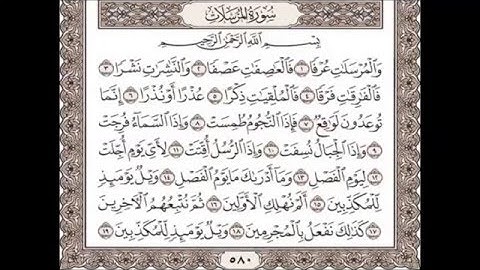 سُورَةُ المُرْسَلَاتِ
بِسْمِ ٱللَّهِ ٱلرَّحْمَٰنِ ٱلرَّحِيمِ
وَٱلْمُرْسَلَٰتِ عُرْفًا ١ فَٱلْعَٰصِفَٰتِ عَصْفًا ٢ وَٱلنَّٰشِرَٰتِ نَشْرًا ٣
فَٱلْفَٰرِقَٰتِ فَرْقًا ٤ فَٱلْمُلْقِيَٰتِ ذِكْرًا ٥ عُذْرًا أَوْ نُذْرًا ٦ إِنَّمَا
تُوعَدُونَ لَوَٰقِعٌ ٧ فَإِذَا ٱلنُّجُومُ طُمِسَتْ ٨ وَإِذَا ٱلسَّمَآءُ فُرِجَتْ
٩ وَإِذَا ٱلْجِبَالُ نُسِفَتْ ١٠ وَإِذَا ٱلرُّسُلُ أُقِّتَتْ ١١ لِأَىِّ يَوْمٍ أُجِّلَتْ
١٢ لِيَوْمِ ٱلْفَصْلِ ١٣ وَمَآ أَدْرَىٰكَ مَا يَوْمُ ٱلْفَصْلِ ١٤ وَيْلٌ يَوْمَئِذٍ
لِّلْمُكَذِّبِينَ ١٥ أَلَمْ نُهْلِكِ ٱلْأَوَّلِينَ ١٦ ثُمَّ نُتْبِعُهُمُ ٱلْءَاخِرِينَ
١٧ كَذَٰلِكَ نَفْعَلُ بِٱلْمُجْرِمِينَ ١٨ وَيْلٌ يَوْمَئِذٍ لِّلْمُكَذِّبِينَ ١٩
٥٨٠